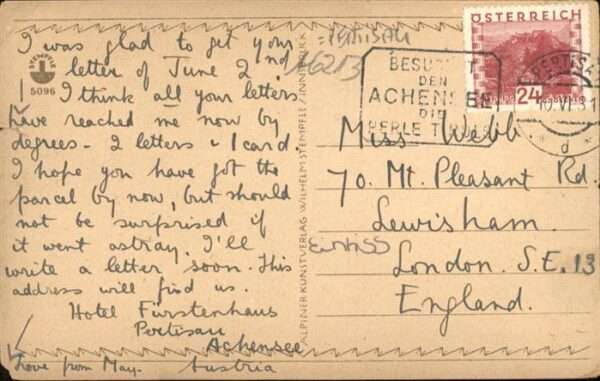 I was glad to get your
letter of June 2nd.
I think all your letters
have reached me now by
degrees - 2 letters - 1 card
I hope you have got the
parcel by now, but should
not be surprised if
it went astray. I'll
write a letter soon. This
address will find us.
Hotel Fürstenhaus
Pertisau
Achensee
Austria
Love from May.
STEMPFLE
5096
ALPINER KUNSTVERLAG WILHELM STEMPFLE / INNSBRUCK
PERTISAU
16213
BESUCHT
DEN
ACHENSEE
DIE
PERLE TIROLS
ÖSTERREICH
24
PERTISAU
d
Miss Webb
70. Mt. Pleasant Rd.
Lewisham.
London. S.E. 13
England.